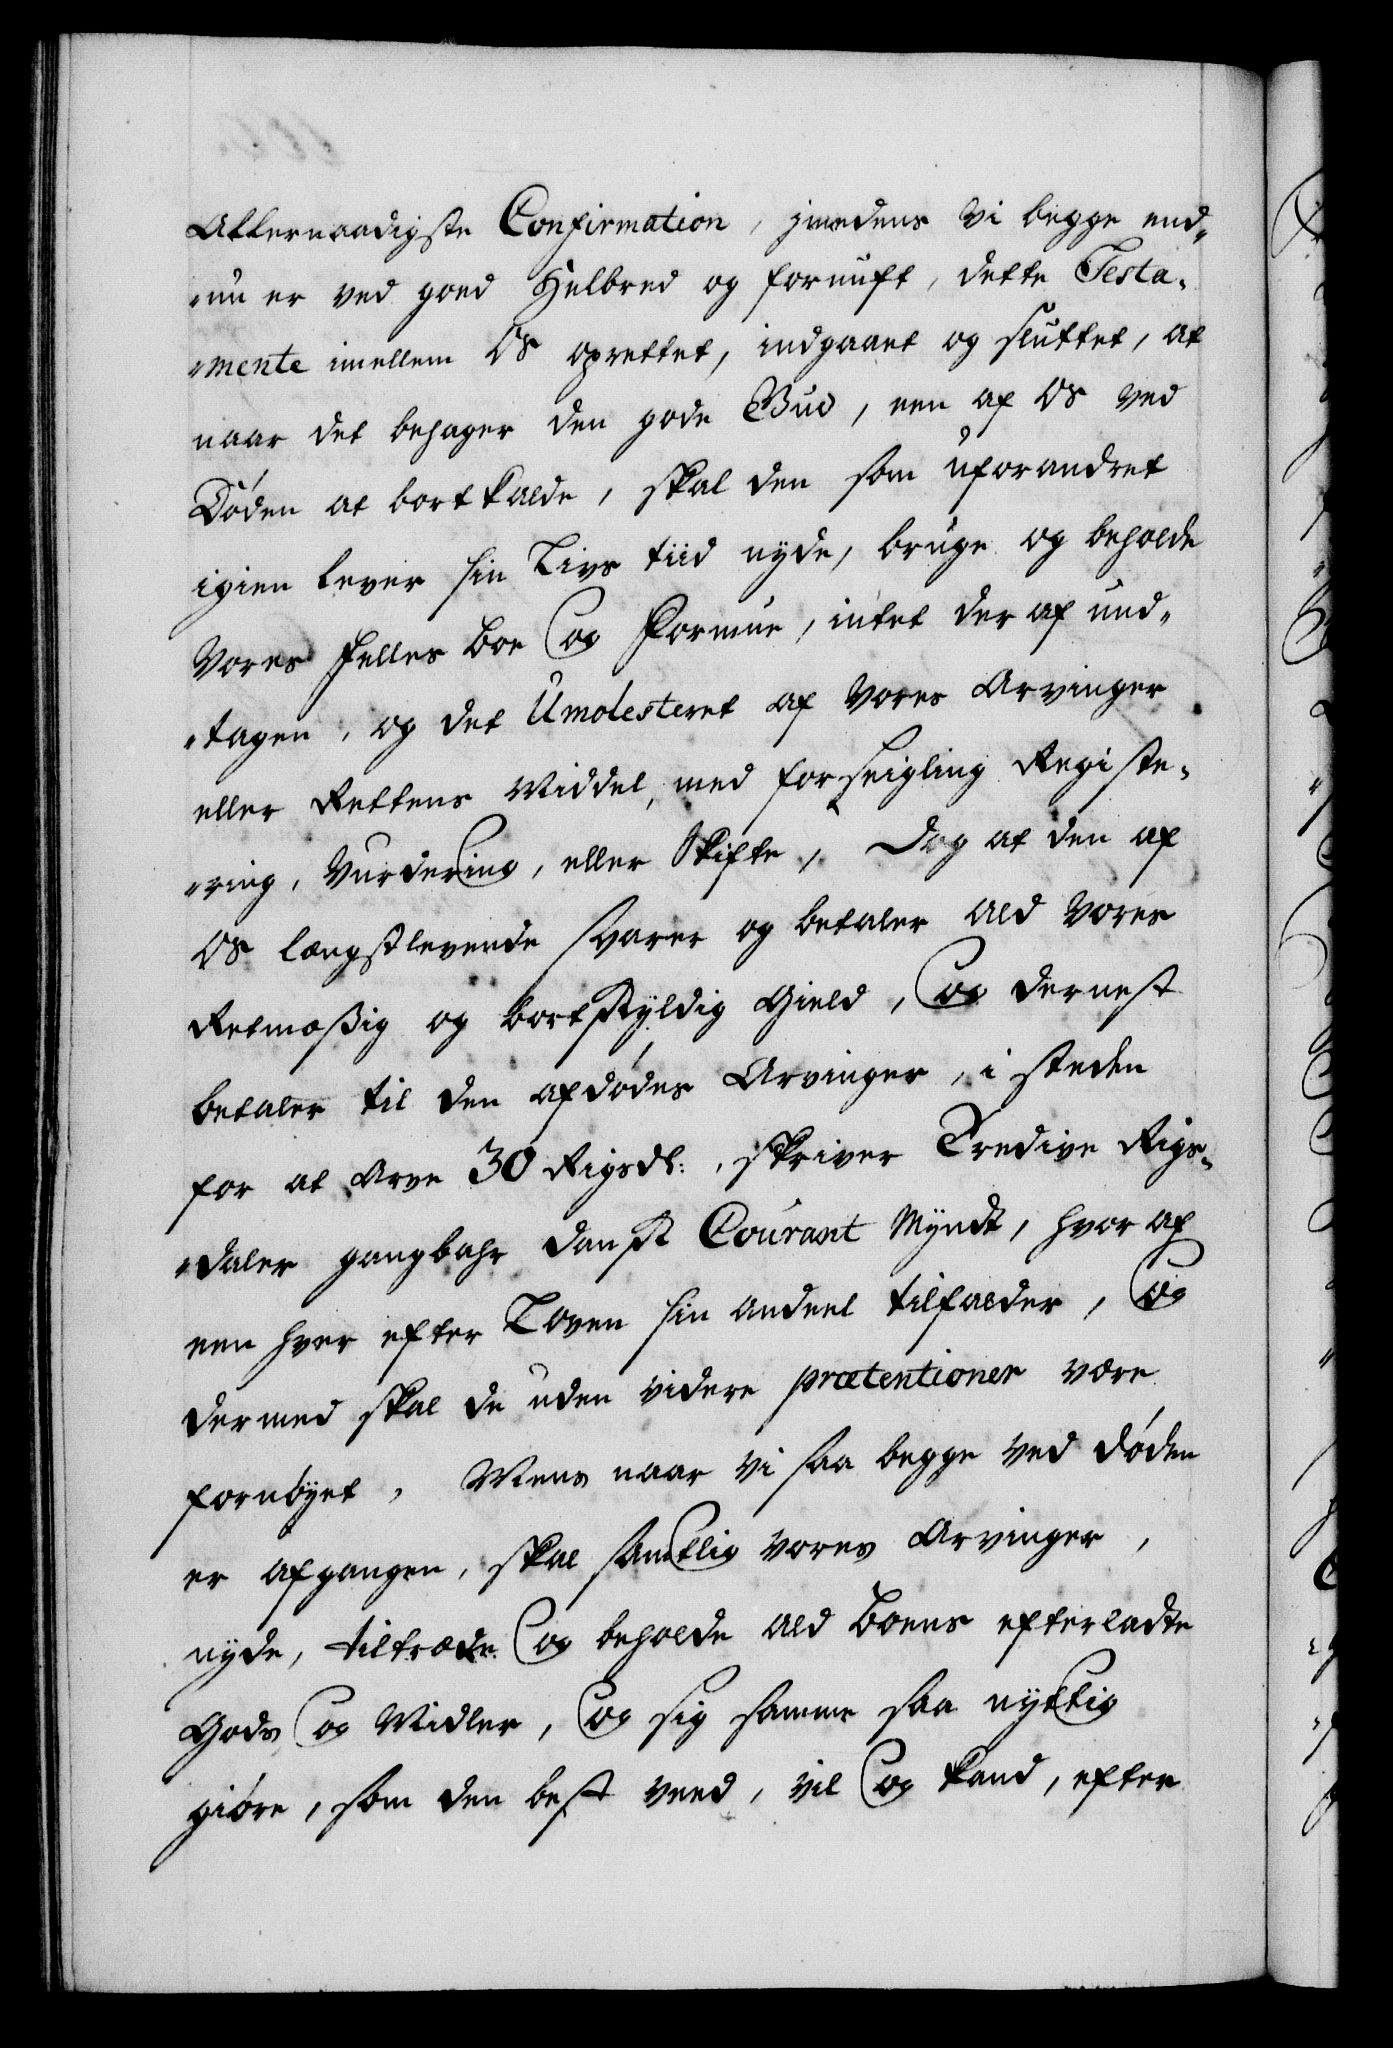 Allernaadigste Confirmation, imedens vi begge end„
„nu er ved goed Helbred og fornuft, dette Testa„
„mente imellem Os oprettet, indgaaet og sluttet, at
naar det behager den gode Gud, een af Os ved
Døden at bortkalde, skal den som uforandret
igien lever sin Livs tiid nyde, bruge og beholde
Vores Fælles boe Og Formue, intet der af und„
„tagen, og det Umolesteret af Vores Arvinger
eller Rettens Middel, med forseigling Registe„
„ring, Vurdering, eller Skifte, Dog at den af
Os længstlevende svarer og betaler ald Vores
Retmæssig og bortskyldig Gield, Og dernest
betaler til den afdødes Arvinger, i steden
for at Arve 30 Rigsdl:, skriver Tredive Rigs„
„daler gangbahr dansk Courant Myndt, hvor af
een hver efter Loven sin andeel tilfalder, Og
dermed skal de uden videre prætentioner være
fornøyet, Mens naar vi saa begge ved døden
er afgangen, skal samtlig vores Arvinger,
nyde, tiltræde Og beholde ald boens efterladte
Gods Og Midler, Og sig samme saa nyttig
giøre, som den best veed, vil Og kand, efter